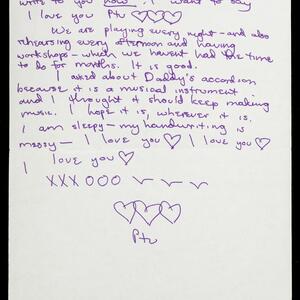 write to you now. I want to say
I love you Ptv ♡♡♡
We are playing every night – and also
rehearsing every afternoon and having
workshops – which we haven't had the time
to do for months. It is good.
I asked about Daddy's accordion
because it is a musical instrument
and I thought it should keep making
music. I hope it is, wherever it is.
I am sleepy – my handwriting is
messy – I love you ♡ I love you ♡
I love you ♡
XXX OOO
♡♡♡
Ptv